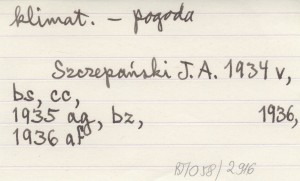 klimat. – pogoda
Szczepański J. A. 1934 v,
bs, cc,
1935 ag, bz, 1936,
1936 af
BJ/058/2916